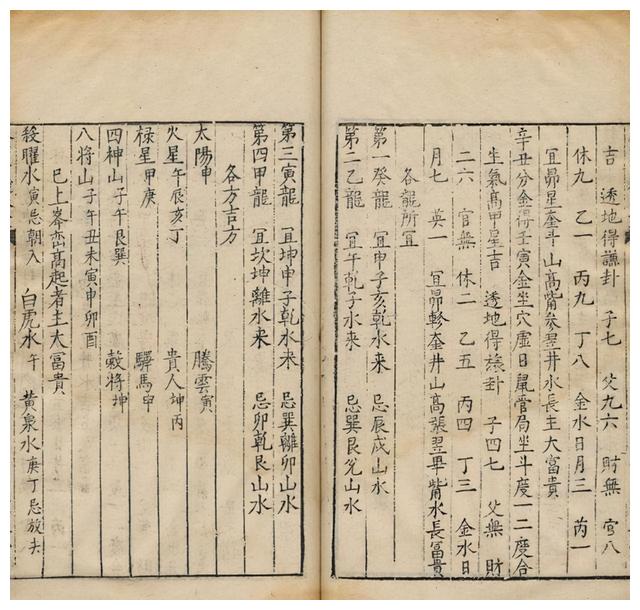 吉 透地得謙卦 子七 父九六 財無 官八
休九 乙一 丙九 丁八 金水日月三 芮一
宜昴星奎斗山高觜参翌井水長主大富貴
辛丑分金得壬寅金坐穴虚日鼠管局坐斗度一二度合
生氣高甲星吉 透地得旅卦 子四七 父無 財
二六 官無 休二 乙五 丙四 丁三 金水日
月七 英一 宜昴軫奎井山高張翌畢觜水長富貴
各龍所宜
第一癸龍 宜申子亥乾水来 忌辰戌山水
第二乙龍 宜午乾子水来 忌巽艮兌山水
第三寅龍 宜坤申子乾水来 忌巽離卯山水
第四甲龍 宜坎坤離水来 忌卯乾艮山水
各方吉方
太陽申 騰雲寅
火星午辰亥丁 貴人坤丙
禄星甲庚 驛馬申
四神山子午艮巽 穀將坤
八將山子午丑未寅申卯酉
已上峯巒高起者主大富貴
殺曜水寅忌朝入 白虎水午 黄泉水庚丁忌放去